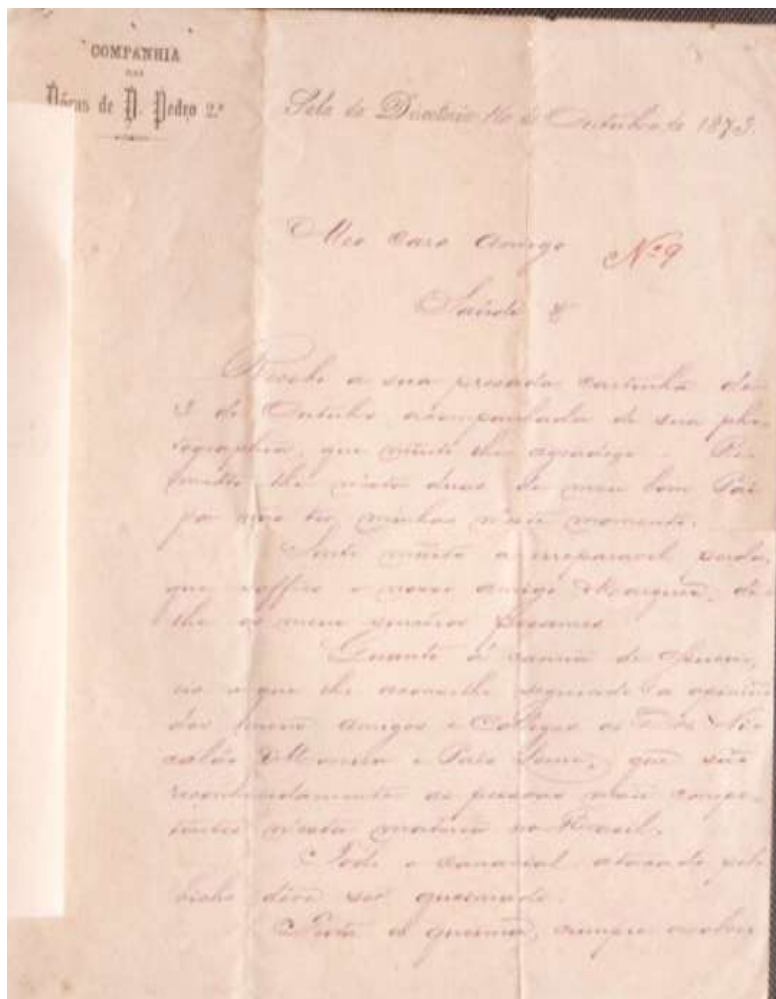 COMPANHIA
DAS
Dócas de D. Pedro 2.º
Sala da Directoria 16 de Outubro de 1873.
Meo caro Amigo Nº 9
Saúde &
Recebi a sua presada cartinha de
3 de Outubro acompanhada de sua pho-
tographia, que muito lhe agradeço. Re-
metto lhe nesta duas de meu bom Pai
por não ter minhas n'este momento.
Sinto muito a irreparavel perda,
que soffreu o nosso amigo Marquez, dê
lhe os meus sinceros pesames
Quanto á canna de
o que lhe aconselho seguindo a opinião
dos meus amigos e Collegas os
Moreira e Paes Leme, que são
reconhecidamente as pessoas mais compe-
tentes n'esta materia no Brasil.
Todo o canavial atacado pelo
bicho deve ser queimado.
a queima, cumpre